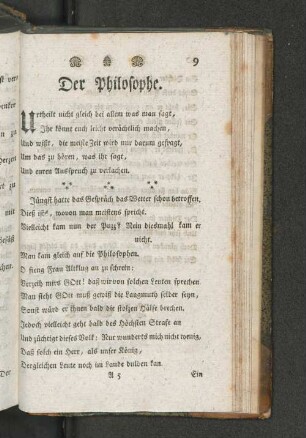 9
Der Philosophe.
Urtheilt nicht gleich bei allem was man sagt,
Ihr könnt euch leicht verächtlich machen,
Und wißt, die meiste Zeit wird nur darum gefragt,
Um das zu hören, was ihr sagt,
Und euren Ausspruch zu verlachen.
Jüngst hatte das Gespräch das Wetter schon betroffen,
Dieß ists, wovon man meistens spricht.
Vielleicht kam nun der Putz? Nein diesmahl kam er
nicht.
Man kam gleich auf die Philosophen.
O fieng Frau Altklug an zu schrein:
Verzeih mirs GOtt! daß wir von solchen Leuten sprechen
Man sieht GOtt muß gewiß die Langmuth selber seyn,
Sonst würd er ihnen bald die stolzen Hälse brechen.
Jedoch vielleicht geht bald des Höchsten Straf an
Und züchtigt dieses Volk: Nur wunderts mich nicht wenig,
Daß solch ein Herr, als unser König,
Dergleichen Leute noch im Lande dulden kan.
A 5 Ein